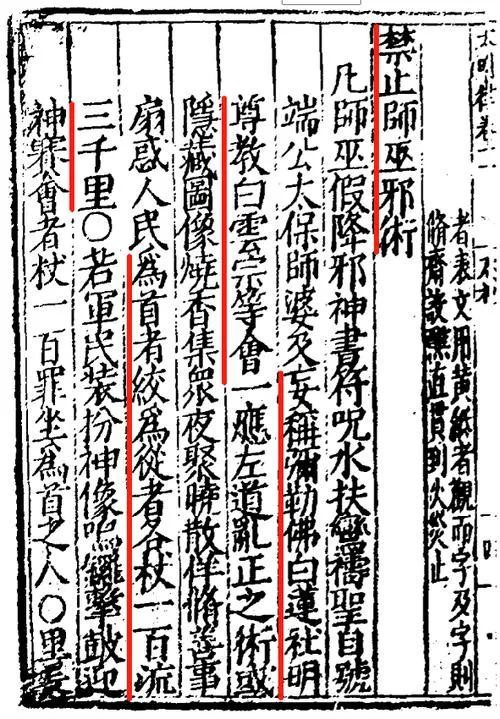 大明律卷
者表文用黃紙者觀面字及字則
脩齋設醮直貫到火焚止
禁止師巫邪術
凡師巫假降邪神書符呪水扶鸞禱聖自號
端公太保師婆及妄稱彌勒佛白蓮社明
尊教白雲宗等會一應左道亂正之術或
隱藏圖像燒香集衆夜聚曉散佯脩善事
扇惑人民爲首者絞爲從者各杖一百流
三千里○若軍民裝扮神像鳴鑼擊鼓迎
神賽會者杖一百罪坐爲首之人○里長